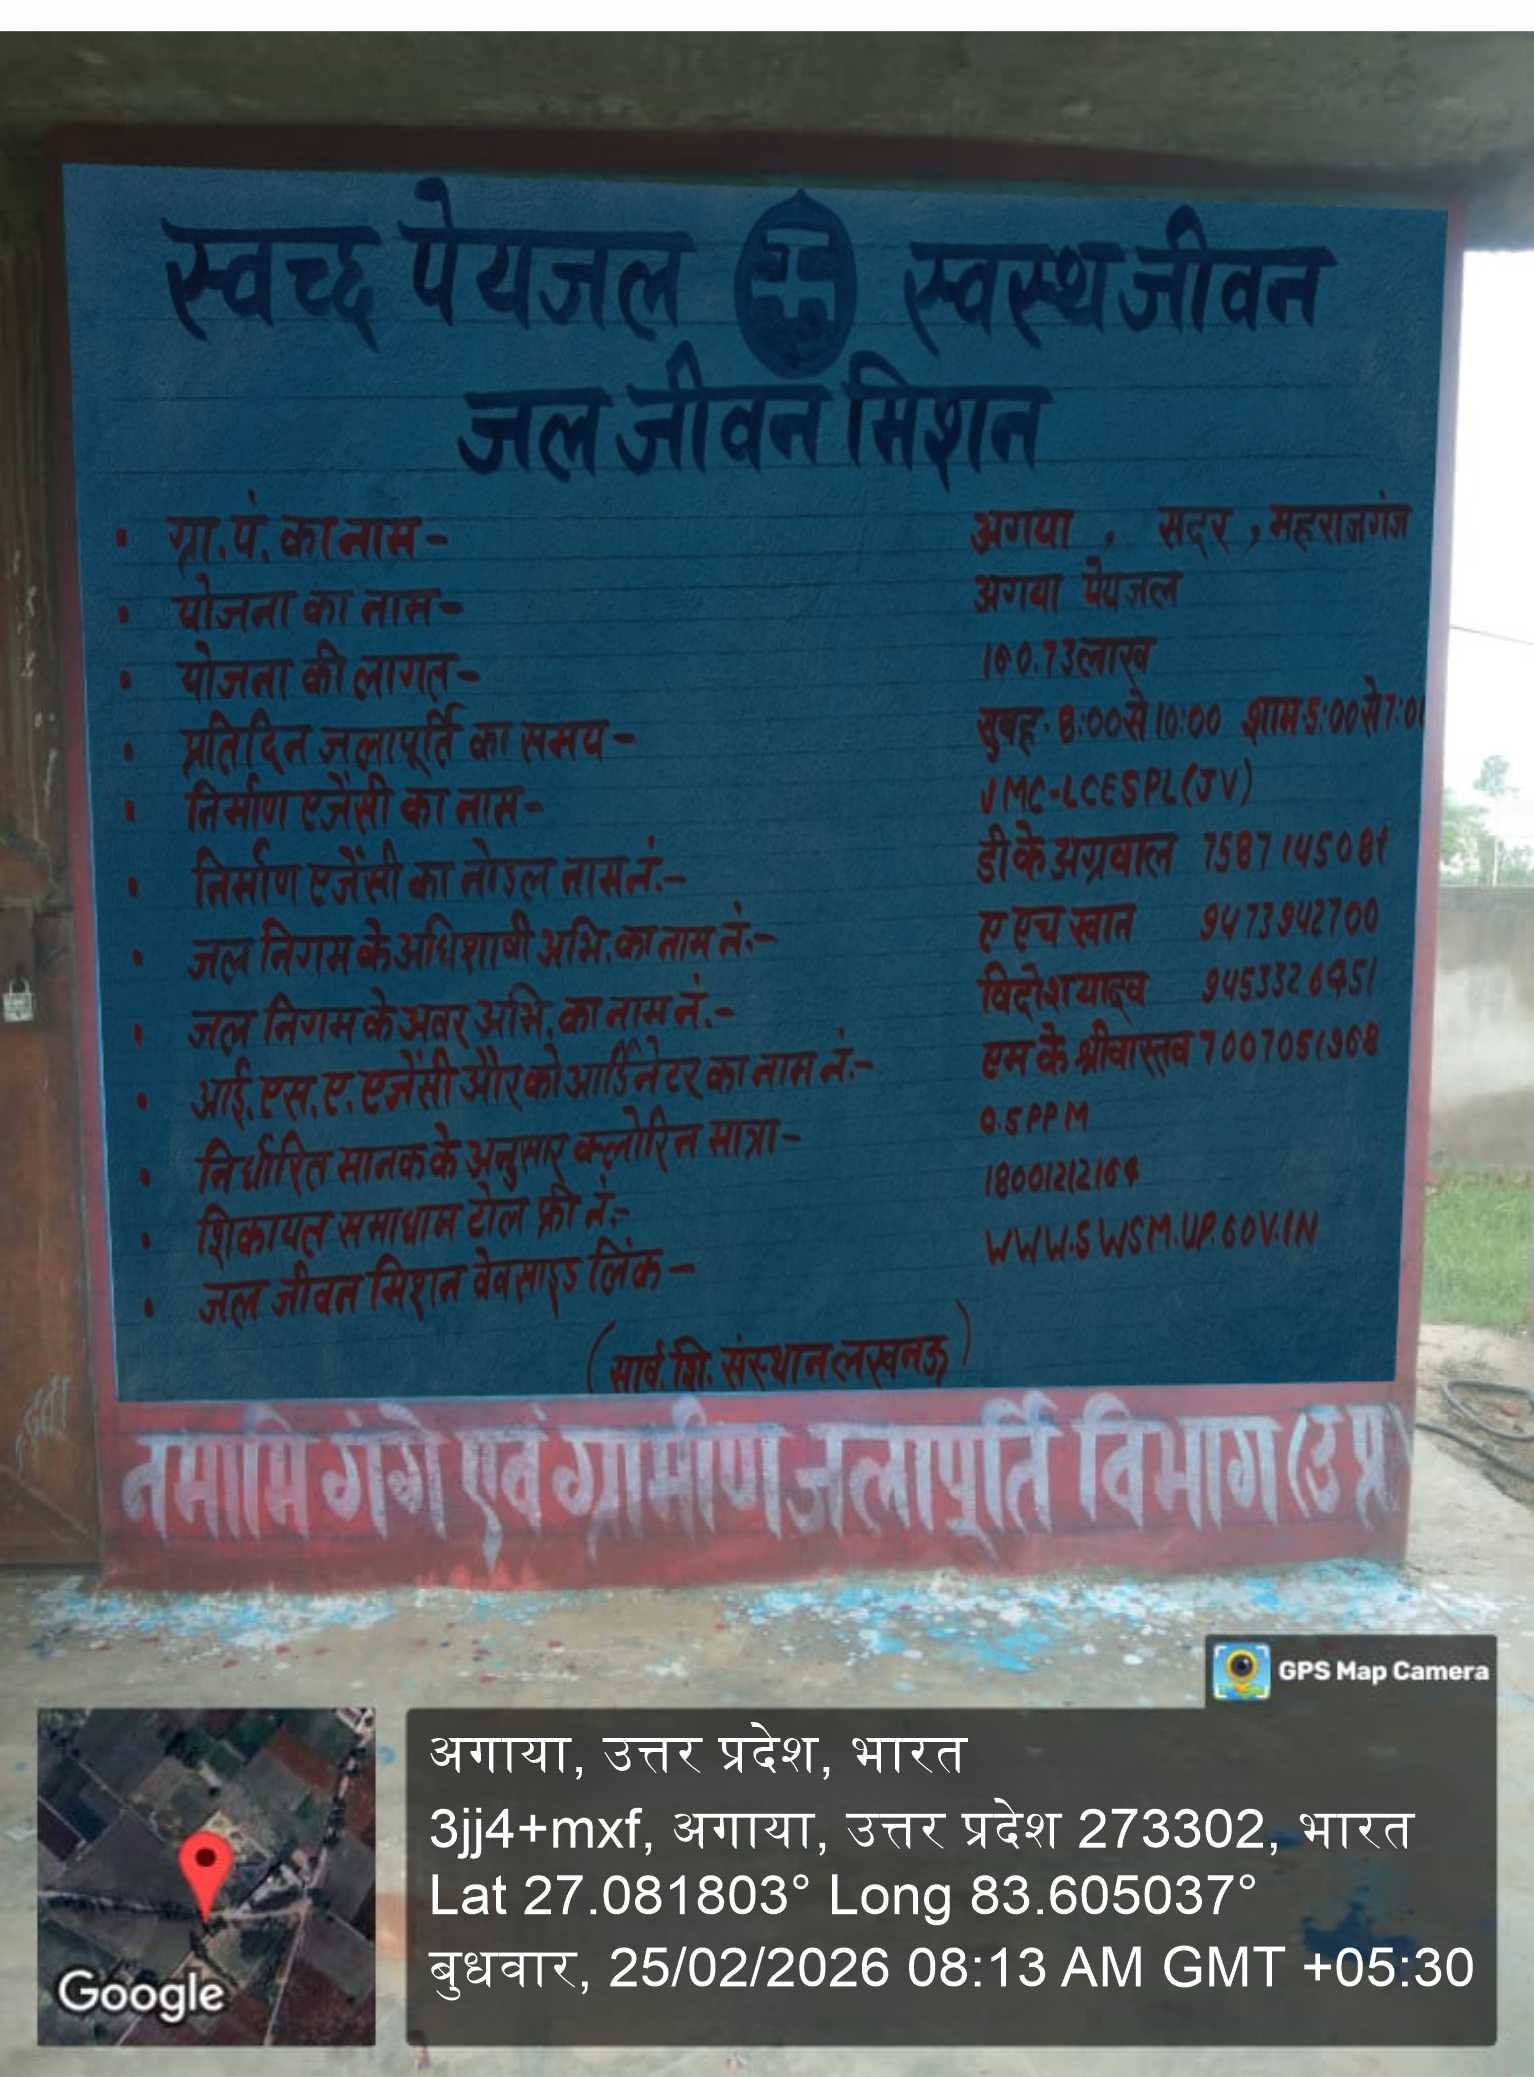 स्वच्छ पेयजल स्वस्थ जीवन
जल जीवन मिशन
• ग्रा.पं. का नाम - अगया , सदर , महराजगंज
• योजना का नाम - अगया पेयजल
• योजना की लागत - लाख
• प्रतिदिन जलापूर्ति का समय - सुबह - 8:00 से 10:00 शाम 5:00 से 7:00
• निर्माण एजेंसी का नाम - JMC-LCESPL(JV)
• निर्माण एजेंसी का नोडल नाम नं.- डी के अग्रवाल
• जल निगम के अधिशाषी अभि. का नाम नं.- ए एच खान 9473942700
• जल निगम के अवर अभि. का नाम नं.- यादव
• आई.एस.ए. एजेंसी और को आर्डिनेटर का नाम नं.- एम के श्रीवास्तव 7007051968
• निर्धारित मानक के अनुसार क्लोरिन मात्रा - 0.5 PPM
• शिकायत समाधान टोल फ्री नं.- 18001212164
• जल जीवन मिशन वेबसाइड लिंक - WWW.SWSM.UP.GOV.IN
(सार्व. शि. संस्थान लखनऊ)
नमामि गंगे एवं ग्रामीण जलापूर्ति विभाग (उ प्र)
GPS Map Camera
अगाया, उत्तर प्रदेश, भारत
3jj4+mxf, अगाया, उत्तर प्रदेश 273302, भारत
Lat 27.081803° Long 83.605037°
बुधवार, 25/02/2026 08:13 AM GMT +05:30
Google